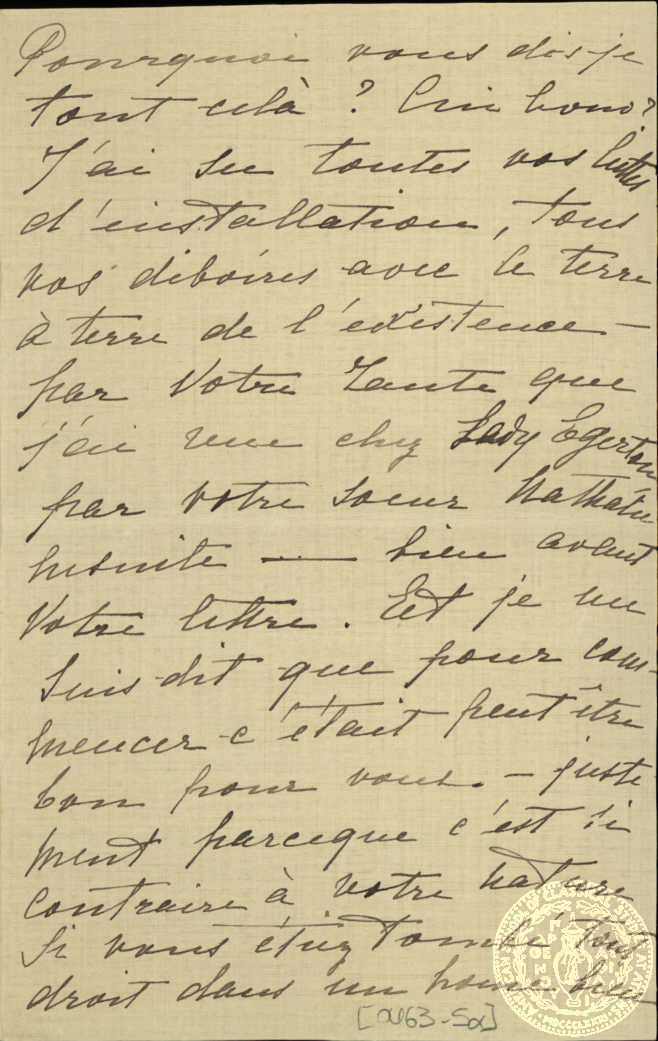 Pourquoi vous dis-je
tout cela ? Cui bono?
J'ai su toutes vos luttes
d'installation, tous
vos déboires avec le terre
à terre de l'existence —
par Votre Tante que
j'ai vue chez Lady Egerton
par votre soeur Nathalie
ensuite — bien avant
Votre lettre. Et je me
suis dit que pour com-
mencer c'était peut être
bon pour vous. — juste
ment parceque c'est si
contraire à votre nature
Si vous étiez tombé tout
droit dans un home bien
[0463-5α]